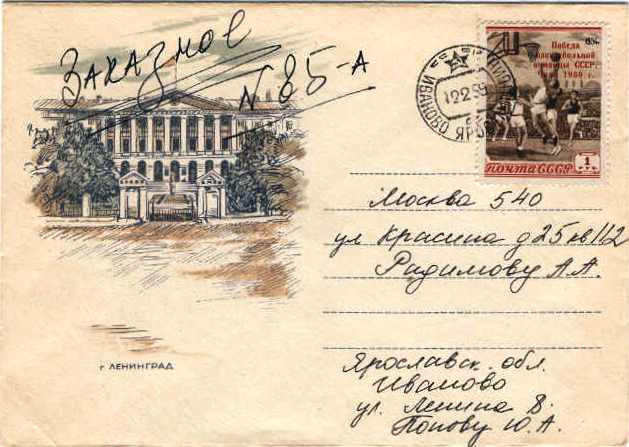 Заказное
N 85-А
ИВАНОВО ЯРО
12 2 59
Победа
баскетбольной
команды СССР.
1959 г.
1
ПОЧТА СССР
Москва 540
ул Красина д 25 кв 112
Радимову А.А.
г ЛЕНИНГРАД
Ярославск. обл.
Иваново
ул. Ленина 8.
Попову Ю.А.